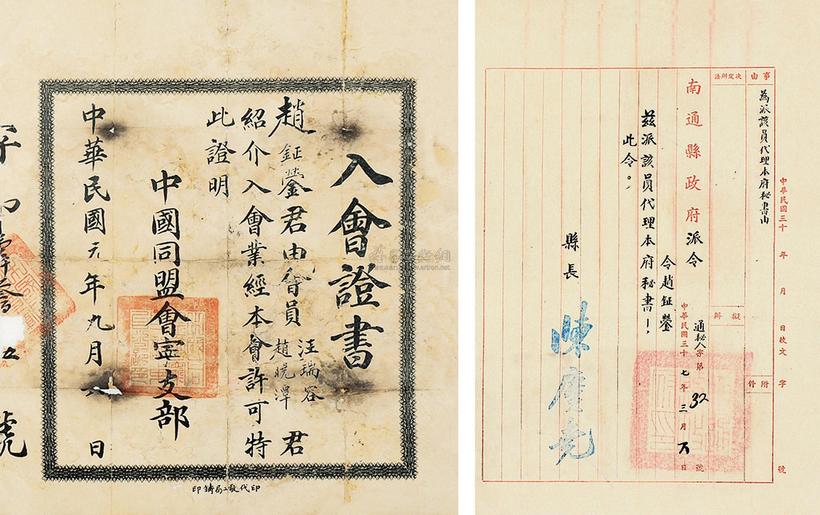 入會證書
趙鉦鎣君由會員汪瑞容 趙晥潭君
紹介入會業經本會許可特
此證明
中國同盟會寧支部
中華民國元年九月 日
印代敎工局鑄印
事由
為派該員代理本府秘書由
決定辦法
擬辦
附件
中華民國三十 年 月 日收文 字 號
南通縣政府派令
通秘人字第32號
中華民國三十七年三月 日
令趙鉦鎣
茲派該員代理本府秘書！
此令。
縣長